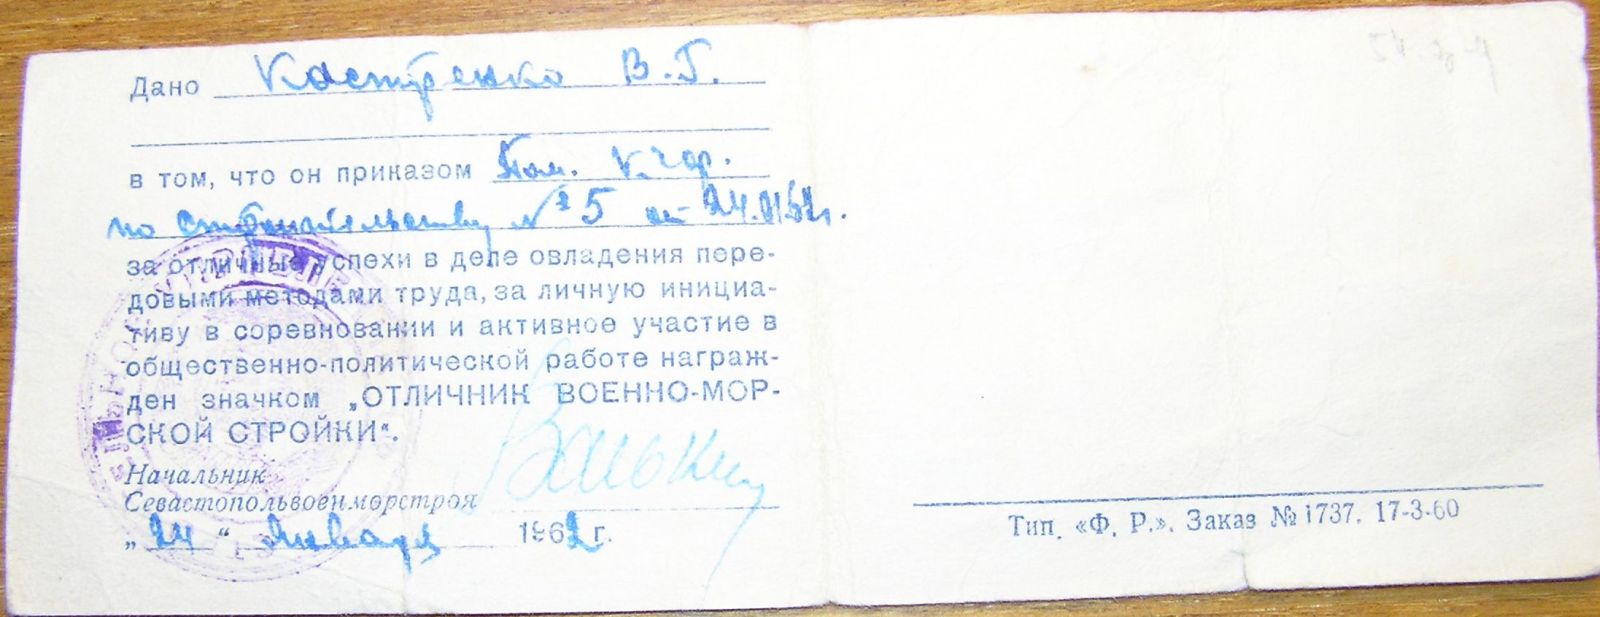 Дано Костренко В.Г.
в том, что он приказом Пом. К.ЧФ.
по строительству № 5 от 24.01.62г.
за отличные успехи в деле овладения пере-
довыми методами труда, за личную инициа-
тиву в соревновании и активное участие в
общественно-политической работе награж-
ден значком „ОТЛИЧНИК ВОЕННО-МОР-
СКОЙ СТРОЙКИ“.
Начальник
Севастопольвоенморстроя
„24“ января 1962 г.
Тип. «Ф. Р.». Заказ № 1737. 17-3-60